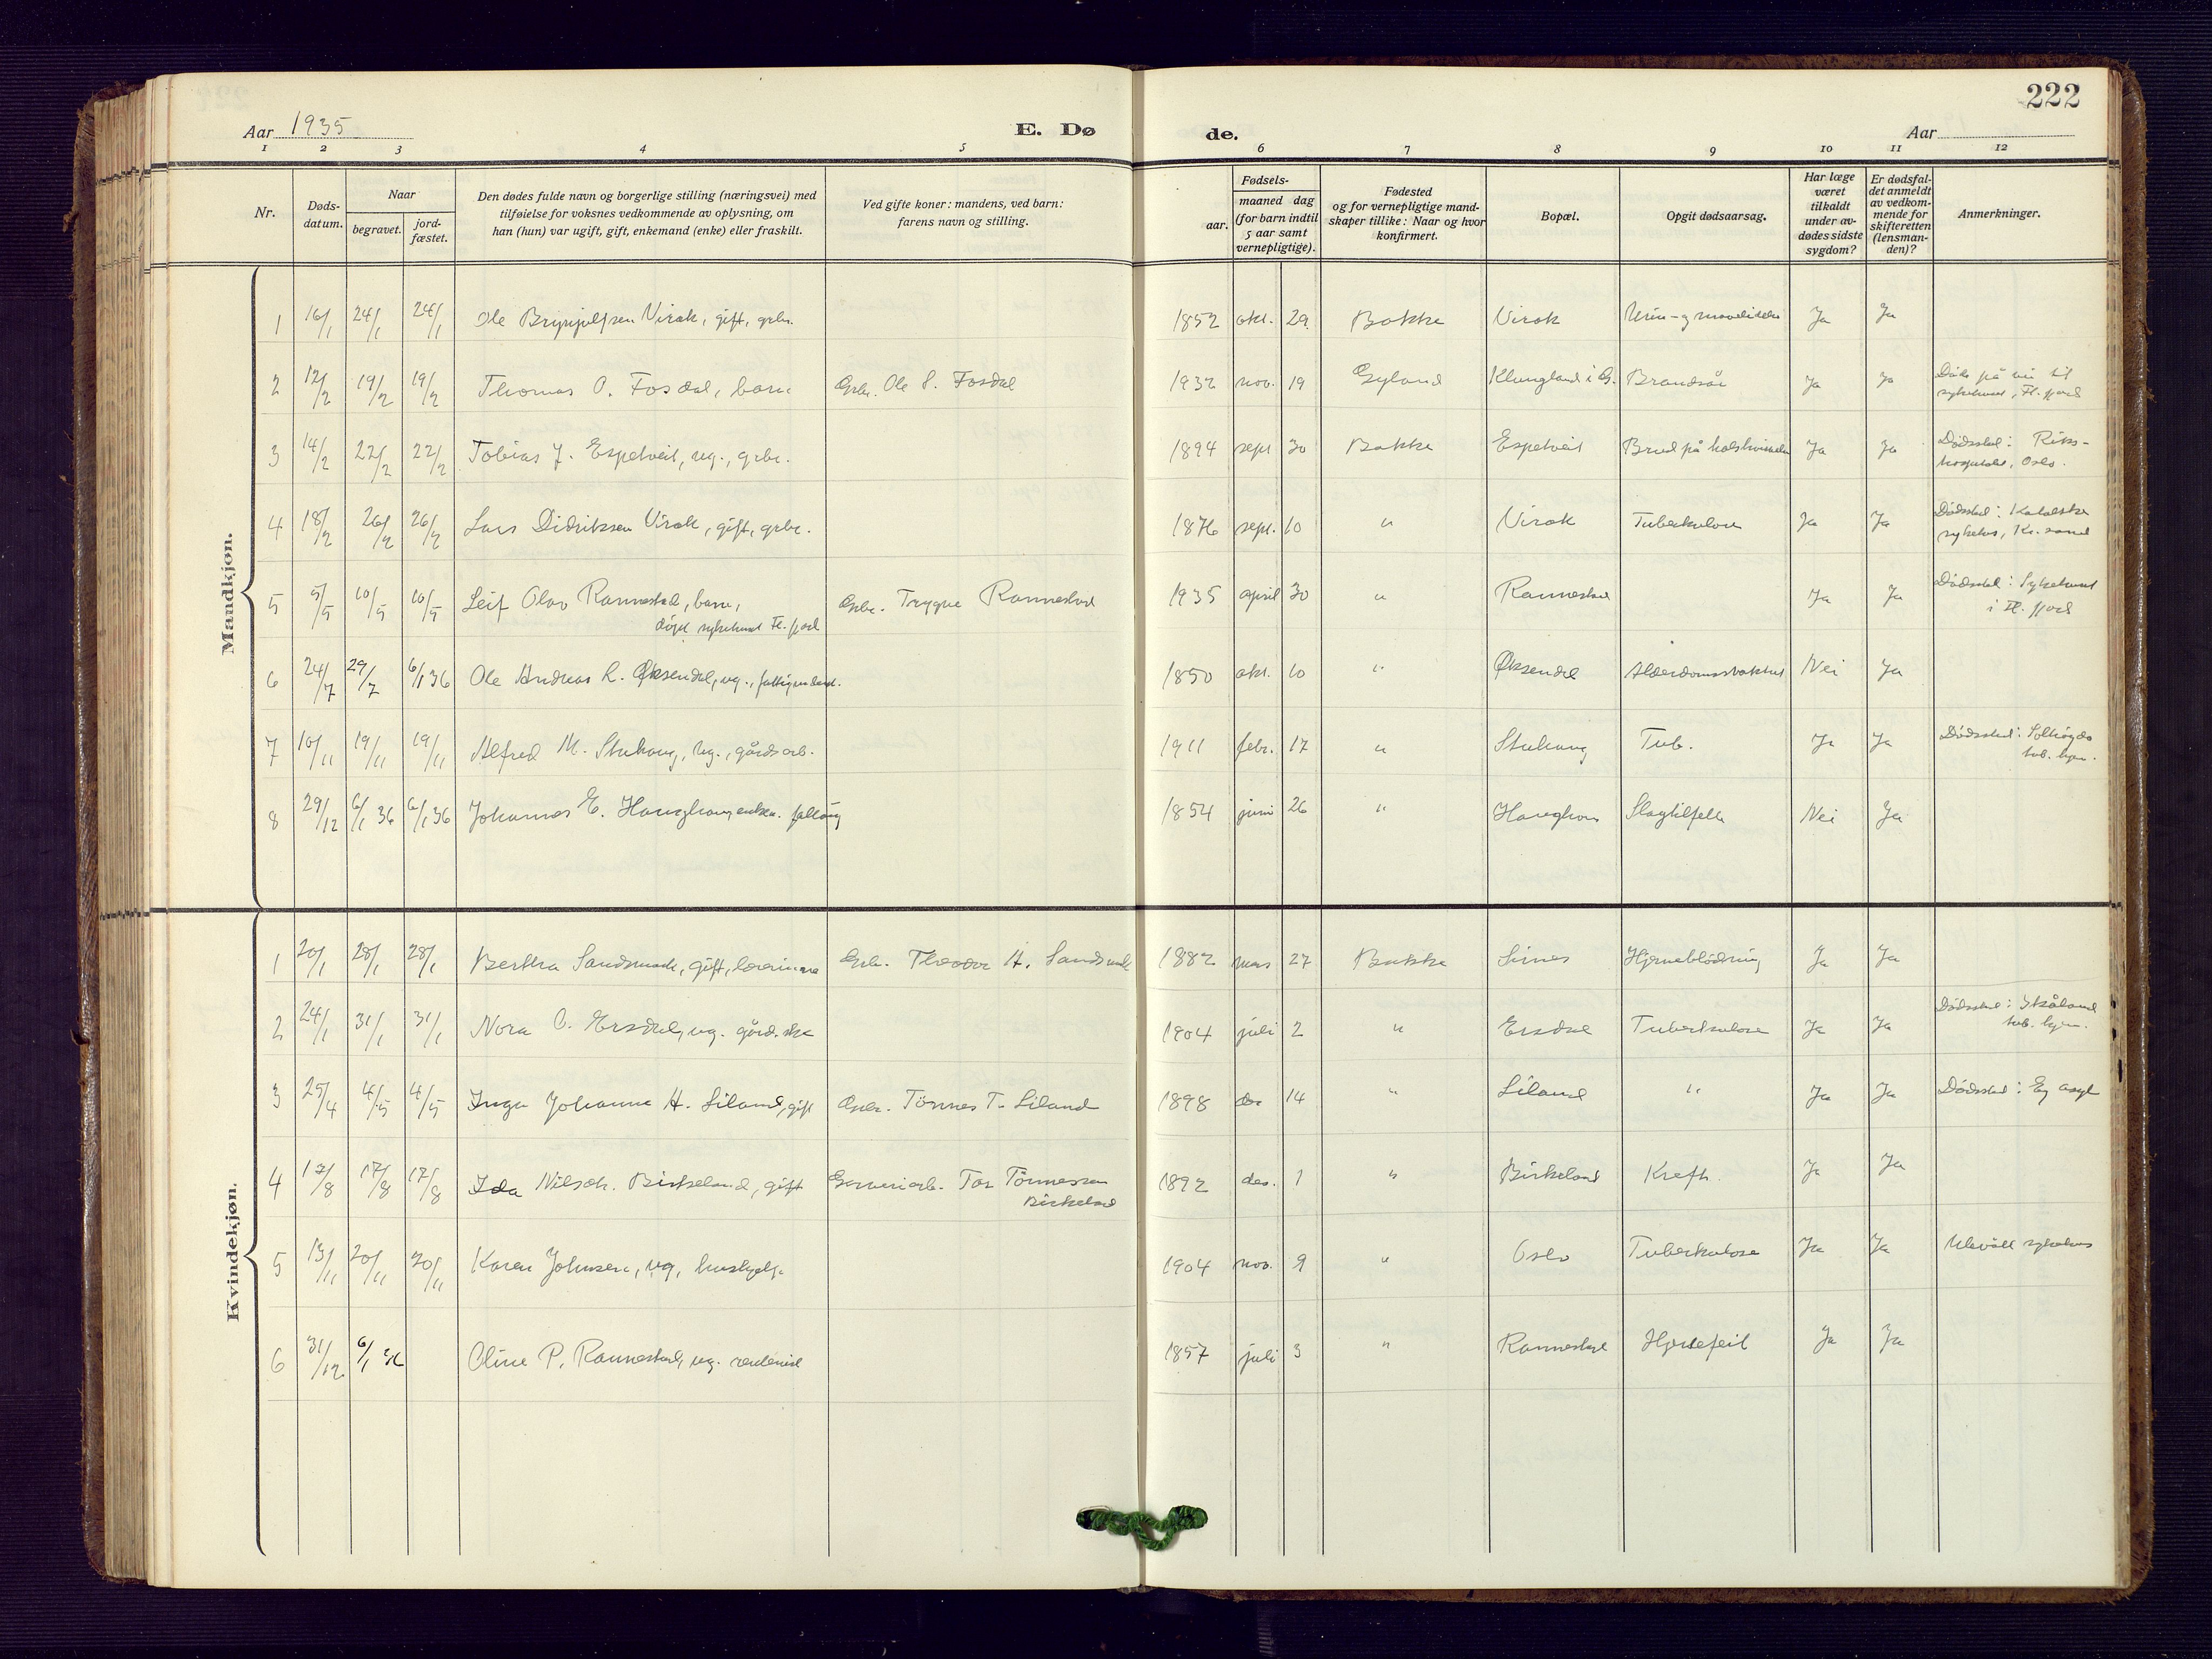 222
Aar 1935
E. Dø
de.
Aar
1 2 3 4 5 6 7 8 9 10 11 12
Nr.
Døds-
datum.
Naar
begravet.
jord-
fæstet.
Den dødes fulde navn og borgerlige stilling (næringsvei) med
tilføielse for voksnes vedkommende av oplysning, om
han (hun) var ugift, gift, enkemand (enke) eller fraskilt.
Ved gifte koner: mandens, ved barn:
farens navn og stilling.
Fødsels-
aar.
maaned dag
(for barn indtil
5 aar samt
vernepligtige).
Fødested
og for vernepligtige mand-
skaper tillike: Naar og hvor
konfirmert.
Bopæl.
Opgit dødsaarsag.
Har læge
været
tilkaldt
under av-
dødes sidste
sygdom?
Er dødsfal-
det anmeldt
av vedkom-
mende for
skifteretten
(lensman-
den)?
Anmerkninger.
Mandkjøn.
1 16/1 24/1 24/1 Ole Brynjulfsen Virak, gift, grbr. 1852 okt. 29 Bakke Virak Ja Ja
2 12/2 19/2 19/2 Thomas O. Fosdal, barn Grbr. Ole S. Fosdal 1932 nov. 19 Gyland Klungland i G. Brandsår Ja Ja Døde på vei til
sykehuset, Fl.fjord
3 14/2 22/2 22/2 Tobias J. Espetveit, ug., grbr. 1894 sept 30 Bakke Espetveit Brud på halshvirvelen Ja Ja Dødssted: Riks-
hospitalet, Oslo.
4 18/2 26/2 26/2 Lars Didriksen Virak, gift, grbr. 1876 sept. 10 " Virak Tuberkulose Ja Ja Dødssted: Katolske
sykehus, Kr.sand
5 5/5 10/5 10/5 Leif Olav Rannestad, barn, Grbr. Trygve Rannestad 1935 april 30 " Rannestad Ja Ja Dødssted: Sykehuset
døpt sykehuset Fl.fjord i Fl.fjord
6 24/7 29/7 6/1 36 Ole Andreas L. Øksendal, ug., fattigunderst. 1850 okt. 10 " Øksendal Alderdomssvakhet Nei Ja
7 10/11 19/11 19/11 Alfred M. Stuhaug, ug., gårdsarb. 1911 febr. 17 " Stuhaug Tub. Ja Ja Dødssted: Solhøgda
tub. hjem.
8 29/12 6/1 36 6/1 36 Johannes E. Haughom, enkem. fattig 1854 juni 26 " Haughom Slagtilfelle Nei Ja
Kvindekjøn.
1 20/1 28/1 28/1 Bertha Sandsmark, gift, lærerinne Grbr. Theodor H. Sandsmark 1882 mars 27 Bakke Sirnes Hjerneblødning Ja Ja
2 24/1 31/1 31/1 Nora O. Ersdal, ug. gård. 1904 juli 2 " Ersdal Tuberkulose Ja Ja Dødssted: Skåland
tub. hjem.
3 25/4 4/5 4/5 Inga Johanne H. Liland, gift Grbr. Tønnes T. Liland 1898 des 14 " Liland " Ja Ja Dødssted: Eg asyl
4 12/8 17/8 17/8 Ida Nilsdt. Birkeland, gift Garveriarb. Tor Tønnessen
Birkeland 1892 des. 1 " Birkeland Kreft. Ja Ja
5 13/11 20/11 20/11 Karen Johnsen, ug, hushjelp. 1904 nov. 9 " Oslo Tuberkulose Ja Ja Ulevåll sykehus
6 31/12 6/1 36 Oline P. Rannestad, ug. 1857 juli 3 " Rannestad Hjertefeil Ja Ja